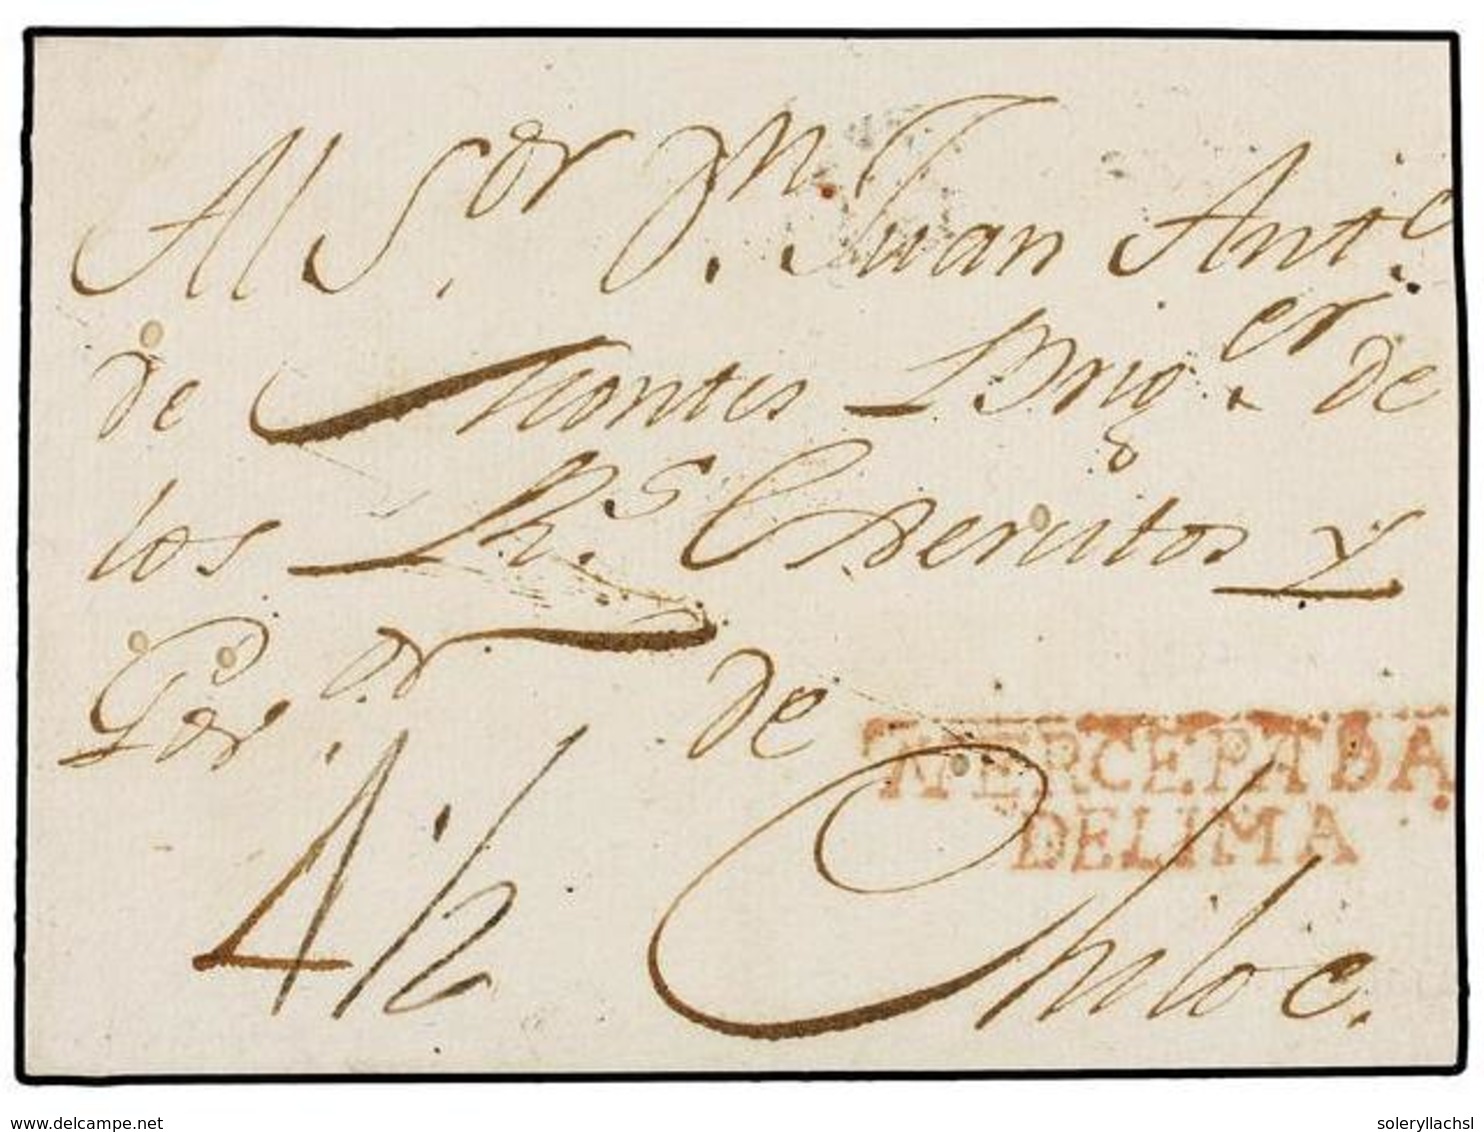 Al S.or D.n Juan Ant.o
de Montes Brig.er de
los R.s Exercitos y
Gov.or de
Chiloe.
4 1/2
MERCEPADA
DE LIMA
www.delcampe.net
soleryllachsl